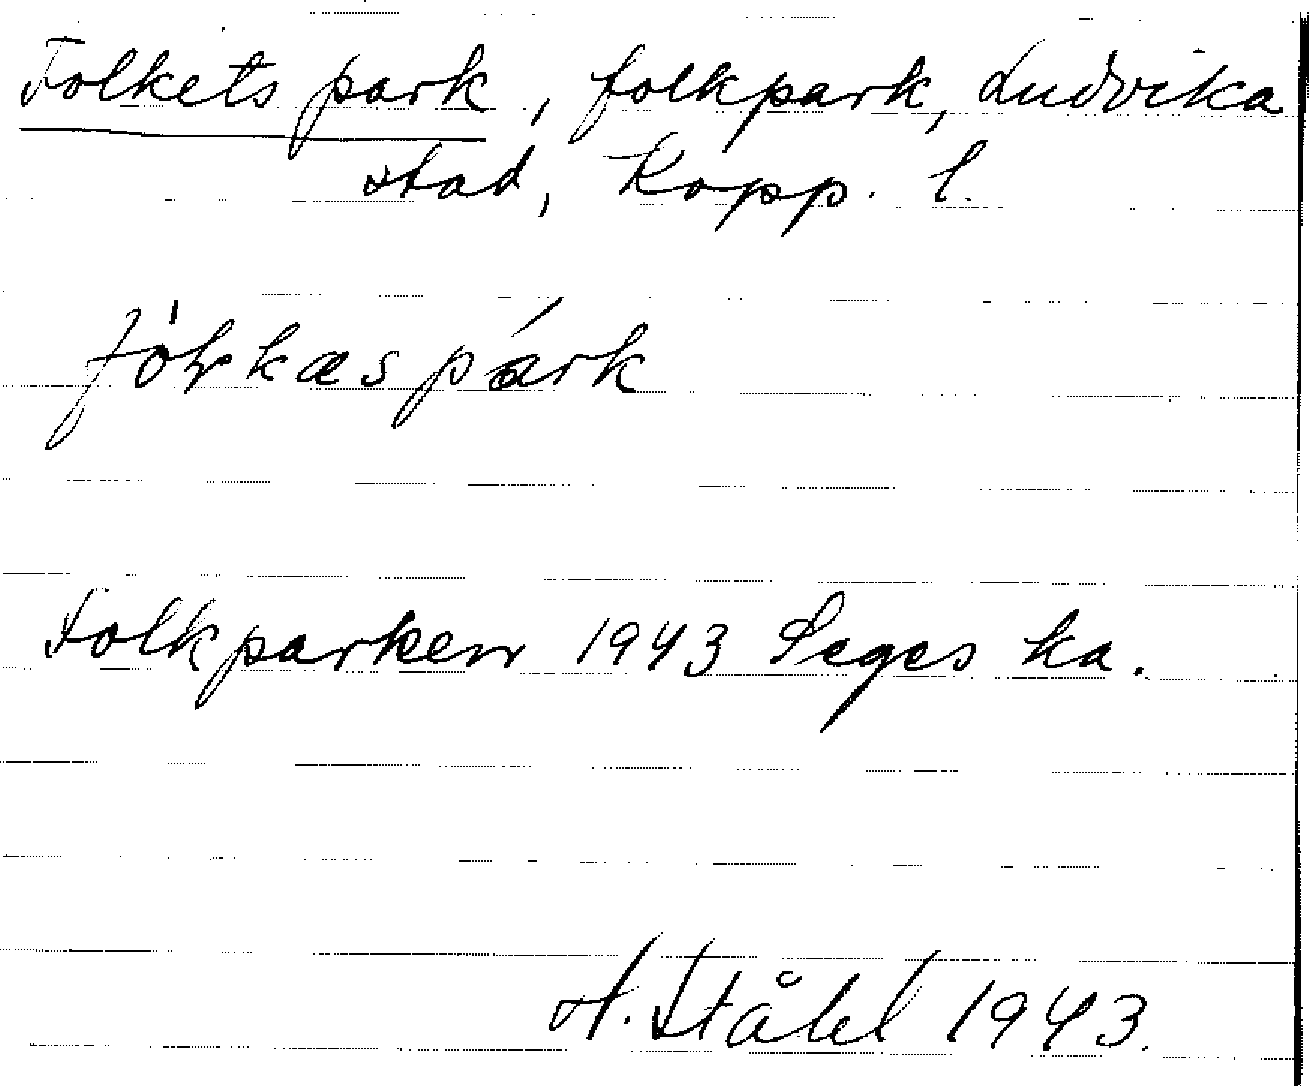 Folkets park, folkpark, Ludvika
stad, Kopp. l.
Folkparken 1943 Seges ka.
H. Ståhl 1943.